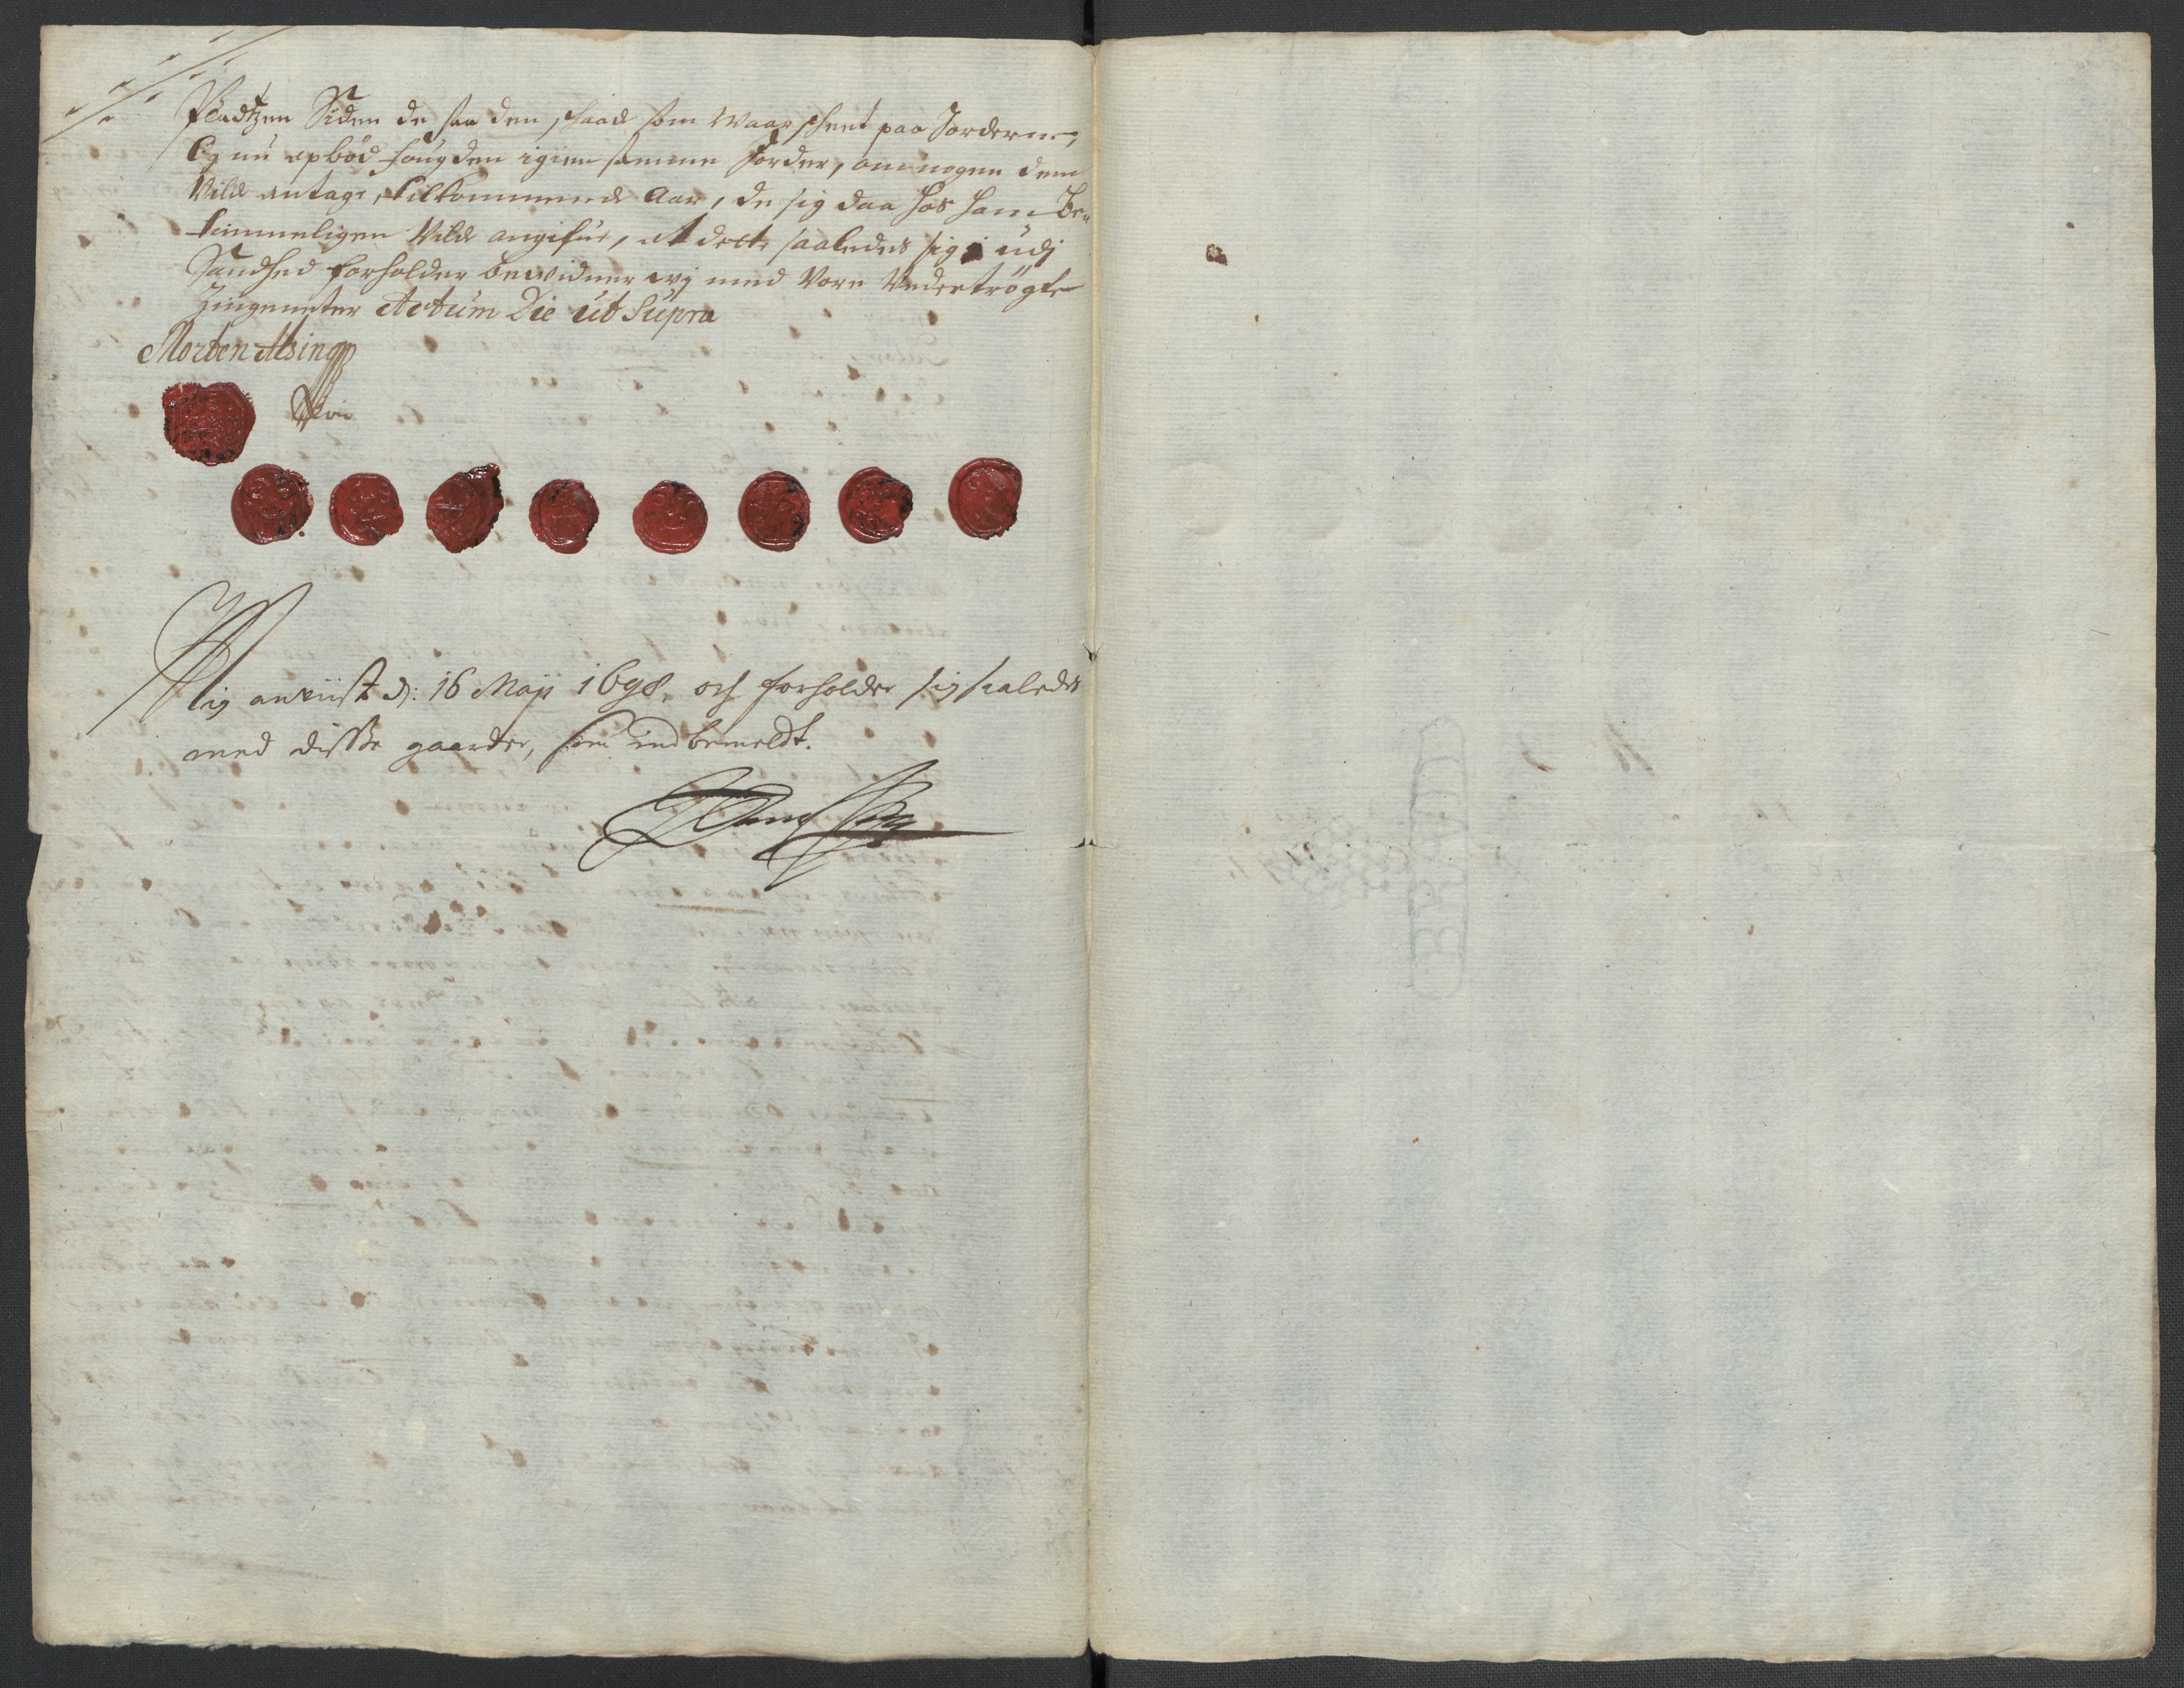 Pladtzen Siden de saa den skade som Waar skeet paa Jorderne,
Og nu opbød fougden igien samme Jorder, om nogen dem
Vilde antage, tilkommende Aar, de sig daa hos ham Be-
timmeligen Vilde angifue, at dette saaledes sig i udj
Sandhed forholder bewidner wj med Vore Vndertrögte
Zingneter Actum Die ut Supra
Morten Alsing
Mig anviist d: 16 Maji 1698, och forholder sig saaledes
med disse gaarder, som indbemeldt.